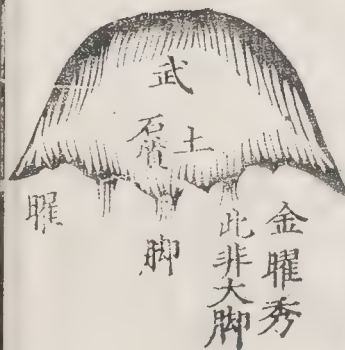 武
土
石質
金曜秀
此非大脚
脚
曜